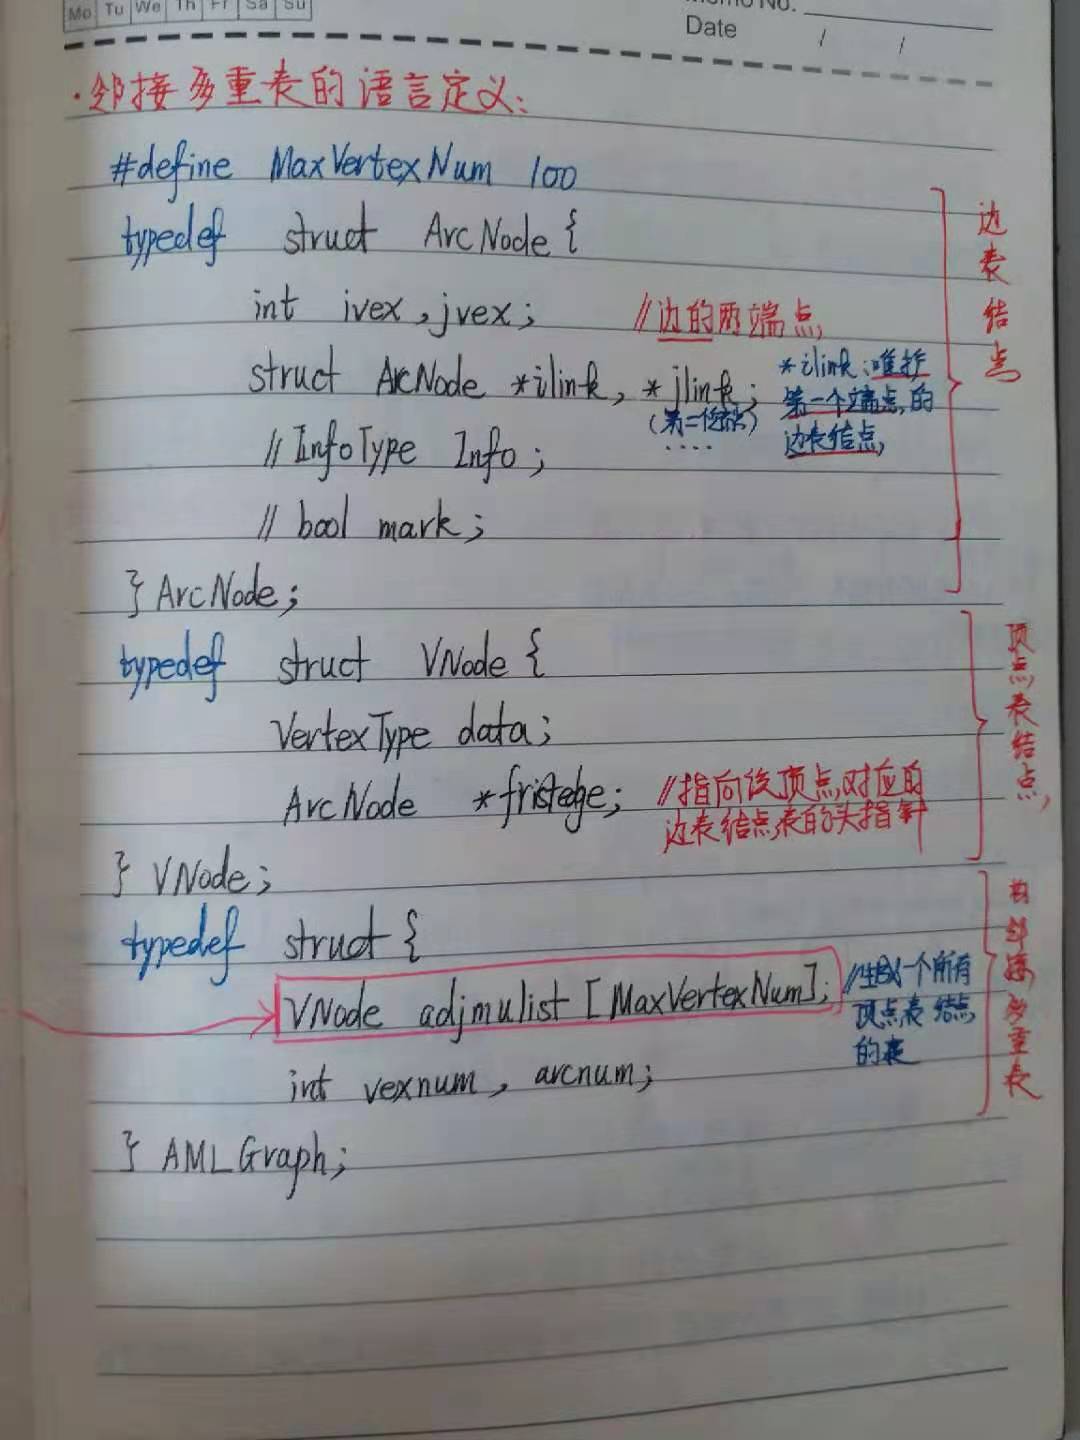 Mo Tu We Th Fr Sa Su
Memo No.
Date / /
·邻接多重表的语言定义:
#define MaxVertexNum 100
typedef struct ArcNode {
int ivex, jvex; //边的两端点
struct ArcNode *ilink, *jlink;
(第二个
....
*ilink:唯护
第一个端点的
边表结点
//InfoType Info;
// bool mark;
} ArcNode;
边表结点
typedef struct VNode {
VertexType data;
ArcNode *fristedge; //指向该顶点对应的
边表结点表的头指针
} VNode;
顶点表结点
typedef struct {
VNode adjmulist [MaxVertexNum]; //生成一个所有
顶点表结点
的表
int vexnum, arcnum;
} AMLGraph;
邻接多重表